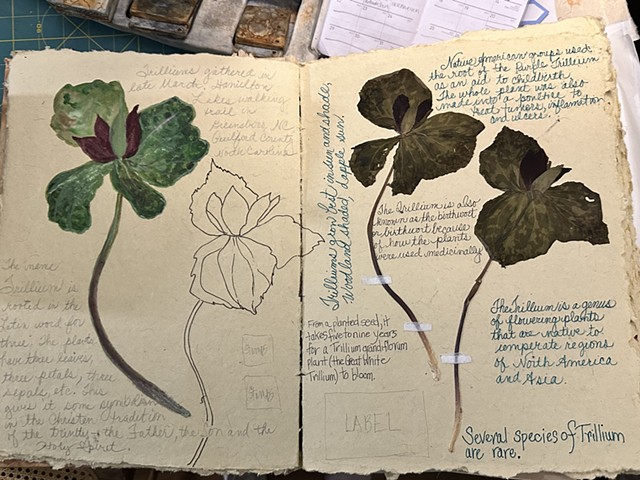 Trilliums gathered in
late March. Hamilton
Lakes walking
trail in
Greensboro, NC
Guilford County
North Carolina
The name
Trillium is
rooted in the
later word for
three. The plants
have three leaves,
three petals, three
sepals, etc. This
gives it some symbolism
in the Christian tradition
of the trinity, the Father, the Son and the
Holy Spirit.
Trilliums grow best in sun and shade,
woodland shaded, dapple sun.
Native American groups used
the root of the Purple Trillium
as an aid to childbirth.
The whole plant was also
made into a poultice to
treat tumors, inflamation
and ulcers.
The Trillium is also
known as the birthwort
or birthwort because
of how the plants
were used medicinally
From a planted seed, it
takes five to nine years
for a Trillium grandiflorum
plant (the Great White
Trillium) to bloom.
LABEL
The Trillium is a genus
of flowering plants
that are native to
temperate regions
of North America
and Asia.
Several species of Trillium
are rare.